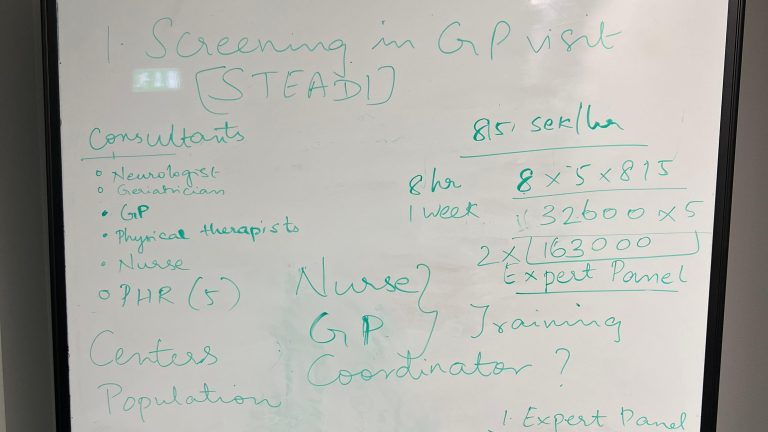 1. Screening in GP visit
[STEADI]
Consultants
Neurologist
Geriatrician
GP
Physical therapists
Nurse
PHR (5)
Centers
Population
815 sek/hr
8hr 8 x 5 x 815
1 week 32600 x 5
2 x 163000
Expert Panel
Nurse
GP } Training
Coordinator ?
1. Expert Panel